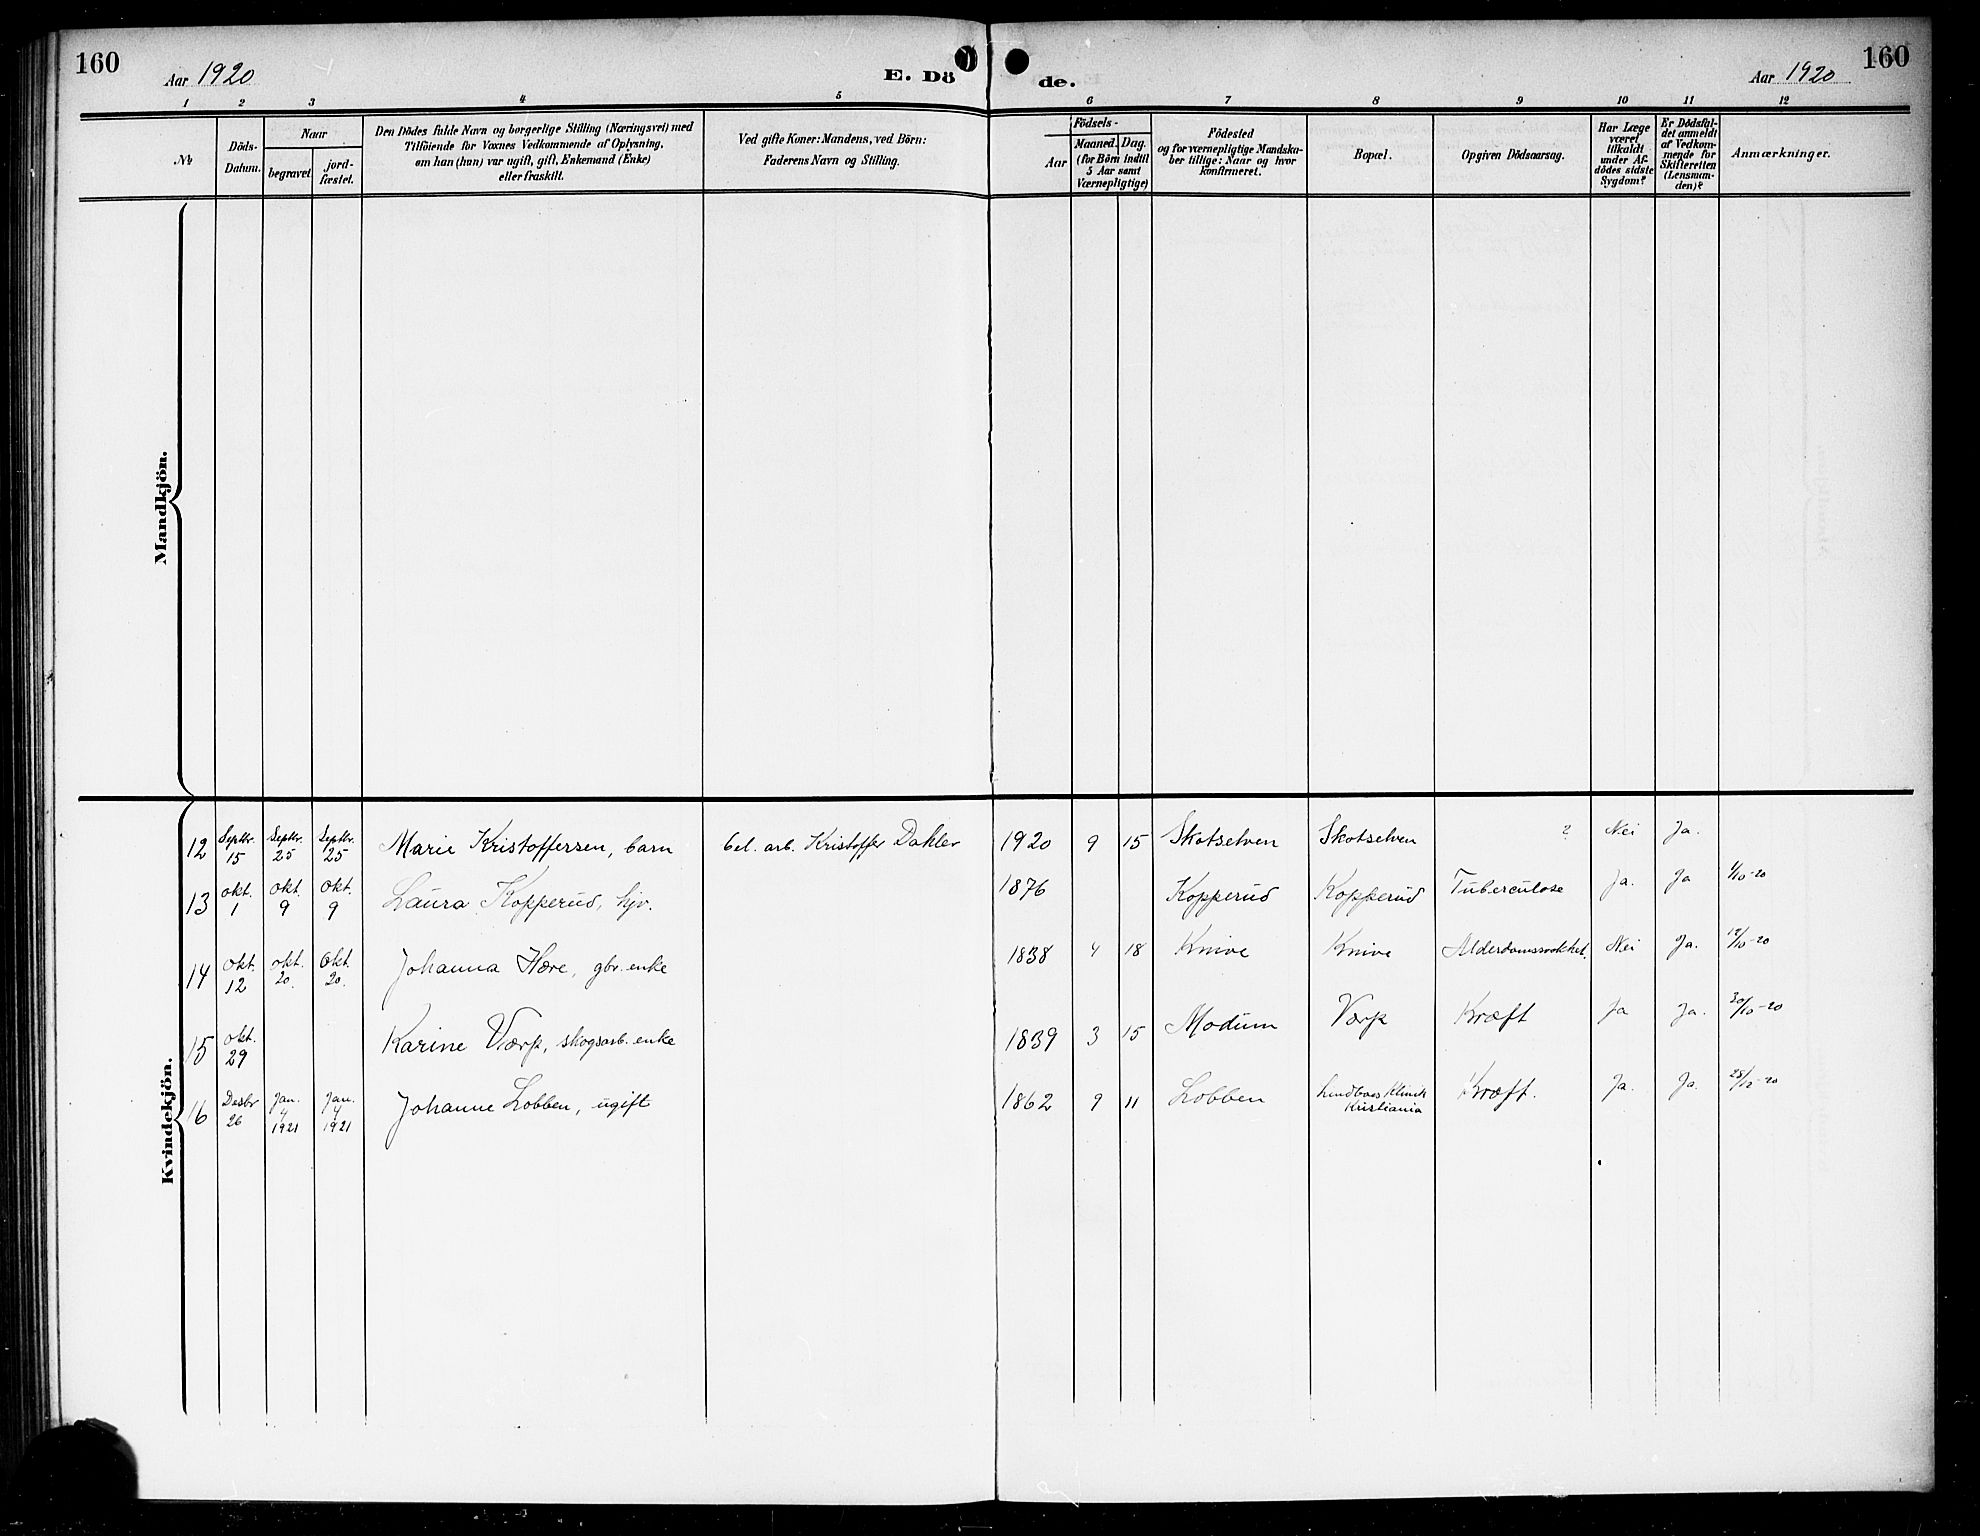 160
Aar 1920
E. Dö de.
Aar 1920
160
1 2 3 4 5 6 7 8 9 10 11 12
№
Döds-
Datum.
Naar
begravet
jord-
fæstet.
Den Dödes fulde Navn og borgerlige Stilling (Næringsvei) med
Tilföiende for Voxnes Vedkommende af Oplysning,
om han (hun) var ugift, gift, Enkemand (Enke)
eller fraskilt.
Ved gifte Koner: Mandens, ved Börn:
Faderens Navn og Stilling.
Födsels-
Aar
Maaned. Dag.
(for Börn indtil
5 Aar samt
Værnepligtige)
Födested
og for værnepligtige Mandska-
ber tillige: Naar og hvor
konfirmeret.
Bopæl.
Opgiven Dödsaarsag.
Har Læge
været
tilkaldt
under Af-
dödes sidste
Sygdom?
Er Dödsfal-
det anmeldt
af Vedkom-
mende for
Skifteretten
(Lensman-
den)?
Anmærkninger.
Mandkjön.
Kvindekjön.
12 Septbr. 15 Septbr. 25 Septbr. 25 Marie Kristoffersen, barn bel. arb. Kristoffer Dahler 1920 9 15 Skotselven Skotselven ? Nei Ja.
13 Okt. 1 Okt. 9 Okt. 9 Laura Kopperud, hjv. 1876 Kopperud Kopperud Tuberculose Ja. Ja 1/10-20
14 Okt. 12 Okt. 20. Okt. 20. Johanna Hære, gbr. enke 1838 4 18 Knive Knive Alderdomssvakhet. Nei Ja. 12/10-20
15 Okt. 29 Karine Værp, skogsarb. enke 1839 3 15 Modum Værp Kræft Ja Ja. 30/10-20
16 Desbr 26 Jan. 4 1921 Jan. 4 1921 Johanne Lobben, ugift 1862 9 11 Lobben Klinik Kristiania Kræft. Ja. Ja. 28/12-20